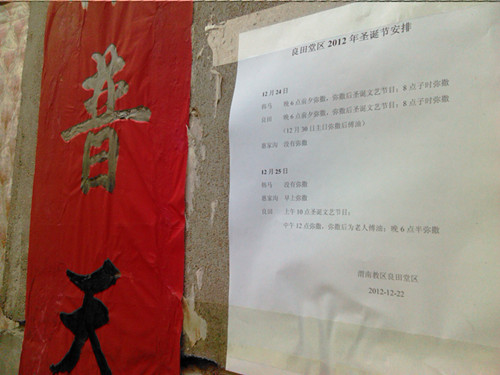 普
天
良田堂区 2012 年圣诞节安排
12 月 24 日
马 晚 6 点前夕弥撒，弥撒后圣诞文艺节目；8 点子时弥撒
良田 晚 6 点前夕弥撒，弥撒后圣诞文艺节目；8 点子时弥撒
（12 月 30 日主日弥撒后傅油）
家沟 没有弥撒
12 月 25 日
马 没有弥撒
家沟 早上弥撒
良田 上午 10 点圣诞文艺节目；
中午 12 点弥撒，弥撒后为老人傅油；晚 6 点半弥撒
渭南教区良田堂区
2012-12-22